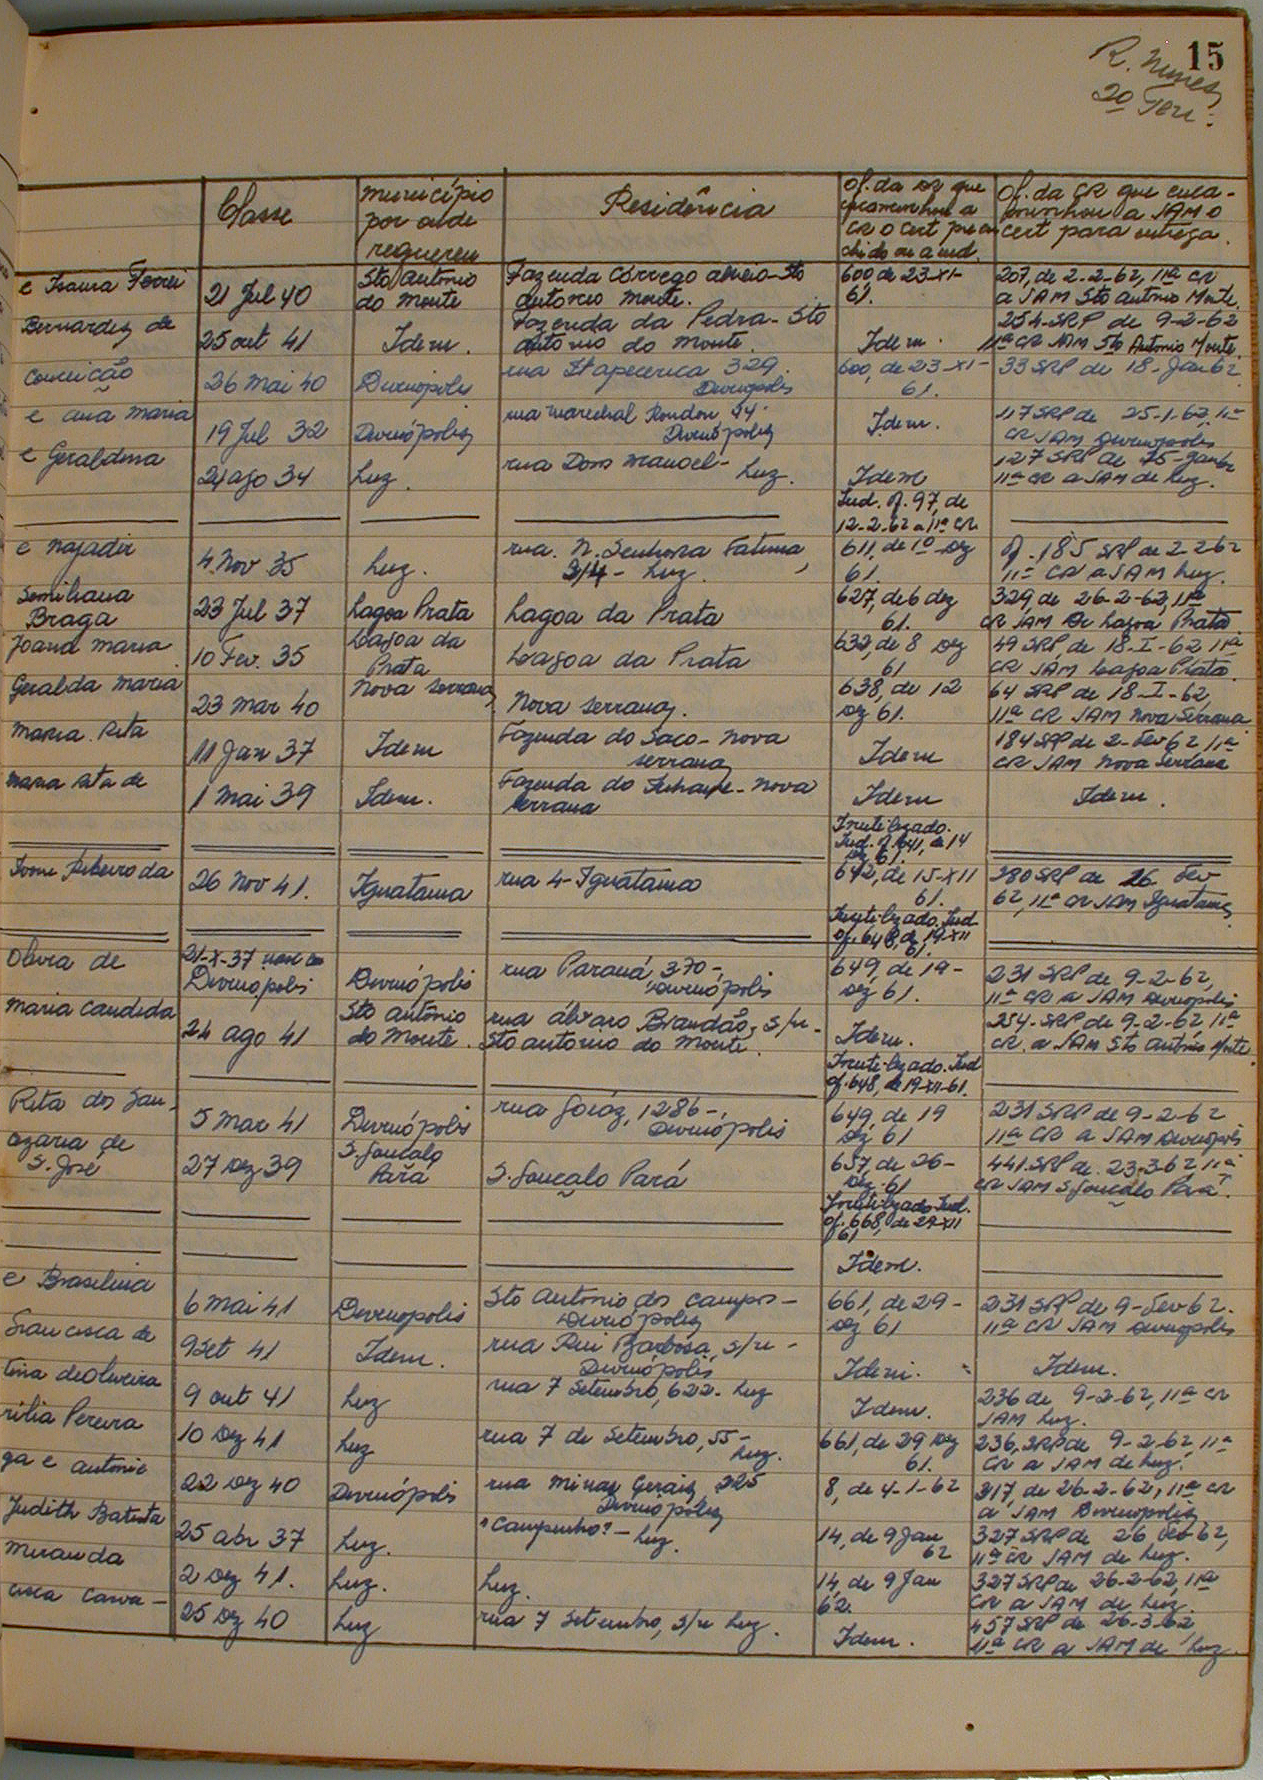 15
R. Nunes
2º Ten.
Classe
Município
por onde
requereu
Residência
Of. da DR que
encaminhou a
CR o cert preen
chido ou a ind.
Of. da CR que enca-
minhou a JAM o
cert para entrega.
e Isaura Ferrei
21 Jul 40
Sto Antônio
do Monte
Fazenda Córrego Sto
Antonio Monte.
600, de 23-XI-
61.
207, de 2-2-62, 11ª CR
a JAM Sto Antônio Monte.
Bernardes de
25 out 41
Idem.
Fazenda da Pedra - Sto
Antonio do Monte.
Idem.
254-SRP de 9-2-62
11ª CR JAM Sto Antonio Monte.
Conceição
26 Mai 40
Divinópolis
rua Itapecerica 329.
Divinópolis
600, de 23-XI-
61.
33 SRP de 18-Jan 62
e Ana Maria
19 Jul 32
Divinópolis
rua Marechal Rondon 94
Divinópolis
Idem.
117 SRP de 25-1-62, 11ª
CR JAM Divinopolis
e Geraldina
24 ago 34
Luz.
rua Dom Manoel -
Luz.
Idem
127 SRP de 25-Jan 62
11ª CR a JAM de Luz.
Ind. of. 97, de
12-2-62 a 11ª CR
e Najadir
4 Nov 35
Luz.
rua. N. Senhora Fatima,
314 - Luz.
611, de 1º Dez
61.
of. 185 SRP de 2 2 62
11ª CR a JAM Luz.
Semiliana
Braga
23 Jul 37
Lagoa Prata
Lagoa da Prata
627, de 6 dez
61.
329, de 26-2-62, 11ª
CR JAM De Lagoa Prata
Joana Maria
10 Fev. 35
Lagoa da
Prata
Lagoa da Prata
632, de 8 Dez
61
49 SRP, de 18-I-62 11ª
CR JAM Lagoa Prata.
Geralda Maria
23 Mar 40
Nova Serrana
Nova Serrana.
638, de 12
Dez 61.
64 SRP de 18-I-62,
11ª CR JAM Nova Serrana
Maria Rita
11 Jan 37
Idem
Fazenda do Saco - Nova
Serrana
Idem
184 SRP de 2-Fev 62 11ª
CR JAM Nova Serrana
Maria Rita de
1 Mai 39
Idem.
Fazenda do - Nova
Serrana
Idem
Idem.
Inutilizado.
Ind. of 641, de 14
Dez 61.
Ivone Ribeiro da
26 Nov 41.
Iguatama
rua 4 - Iguatama
642, de 15-XII
61.
280 SRP de 26 Fev
62, 11ª CR JAM Iguatama
Inutilizado. Ind
of. 648, de 19-XII
61.
Olivia de
21-X-37 nasc em
Divinopolis
Divinópolis
rua Paraná 370 -
Divinópolis
649, de 19-
Dez 61.
231 SRP de 9-2-62,
11ª CR a JAM Divinopolis
Maria Candida
24 ago 41
Sto Antônio
do Monte.
rua Álvaro Brandão, s/n -
Sto Antonio do Monte.
Idem.
254-SRP de 9-2-62 11ª
CR. a JAM Sto Antônio Monte
Inutilizado. Ind
of. 648, de 19-XII-61.
Rita dos San-
5 Mar 41
Divinópolis
rua Goiáz, 1286 -
Divinópolis
649, de 19
Dez 61
231 SRP de 9-2-62
11ª CR a JAM Divinopolis
ozaria de
S. José
27 Dez 39
S. Gonçalo
Pará
S. Gonçalo Pará
657, de 26-
Dez-61
441.SRP de 23-3-62 11ª
CR JAM S. Gonçalo Pará.
Inutilizado Ind.
of. 668, de 29-XII
61
Idem.
e Brasilina
6 Mai 41
Divinopolis
Sto Antonio dos Campos -
Divinópolis
661, de 29-
Dez 61
231 SRP de 9-Fev 62.
11ª CR JAM Divinopolis
Francisca de
9 Set 41
Idem.
rua Rui Barbosa, s/n -
Divinópolis
Idem.
Idem.
tina de Oliveira
9 out 41
Luz
rua 7 Setembro, 622 - Luz
Idem.
236 de 9-2-62, 11ª CR
JAM Luz.
rilia Pereira
10 Dez 41
Luz
rua 7 de Setembro, 55 -
Luz.
661, de 29 Dez
61.
236, SRP de 9-2-62, 11ª
CR a JAM de Luz.
ga e Antonio
22 Dez 40
Divinópolis
rua Minas Gerais, 225
Divinopolis
8, de 4-1-62
317, de 26-2-62, 11ª CR
a JAM Divinopolis
Judith Batista
25 abr 37
Luz.
"Campinho" - Luz.
14, de 9 Jan
62
327 SRP de 26 Fev 62,
11ª CR JAM de Luz.
Miranda
2 Dez 41.
Luz.
Luz.
14, de 9 Jan
62.
327 SRP de 26-2-62, 11ª
CR a JAM de Luz.
cisca Carva-
25 Dez 40
Luz
rua 7 Setembro, s/n Luz.
Idem.
457 SRP de 26-3-62
11ª CR a JAM de Luz.